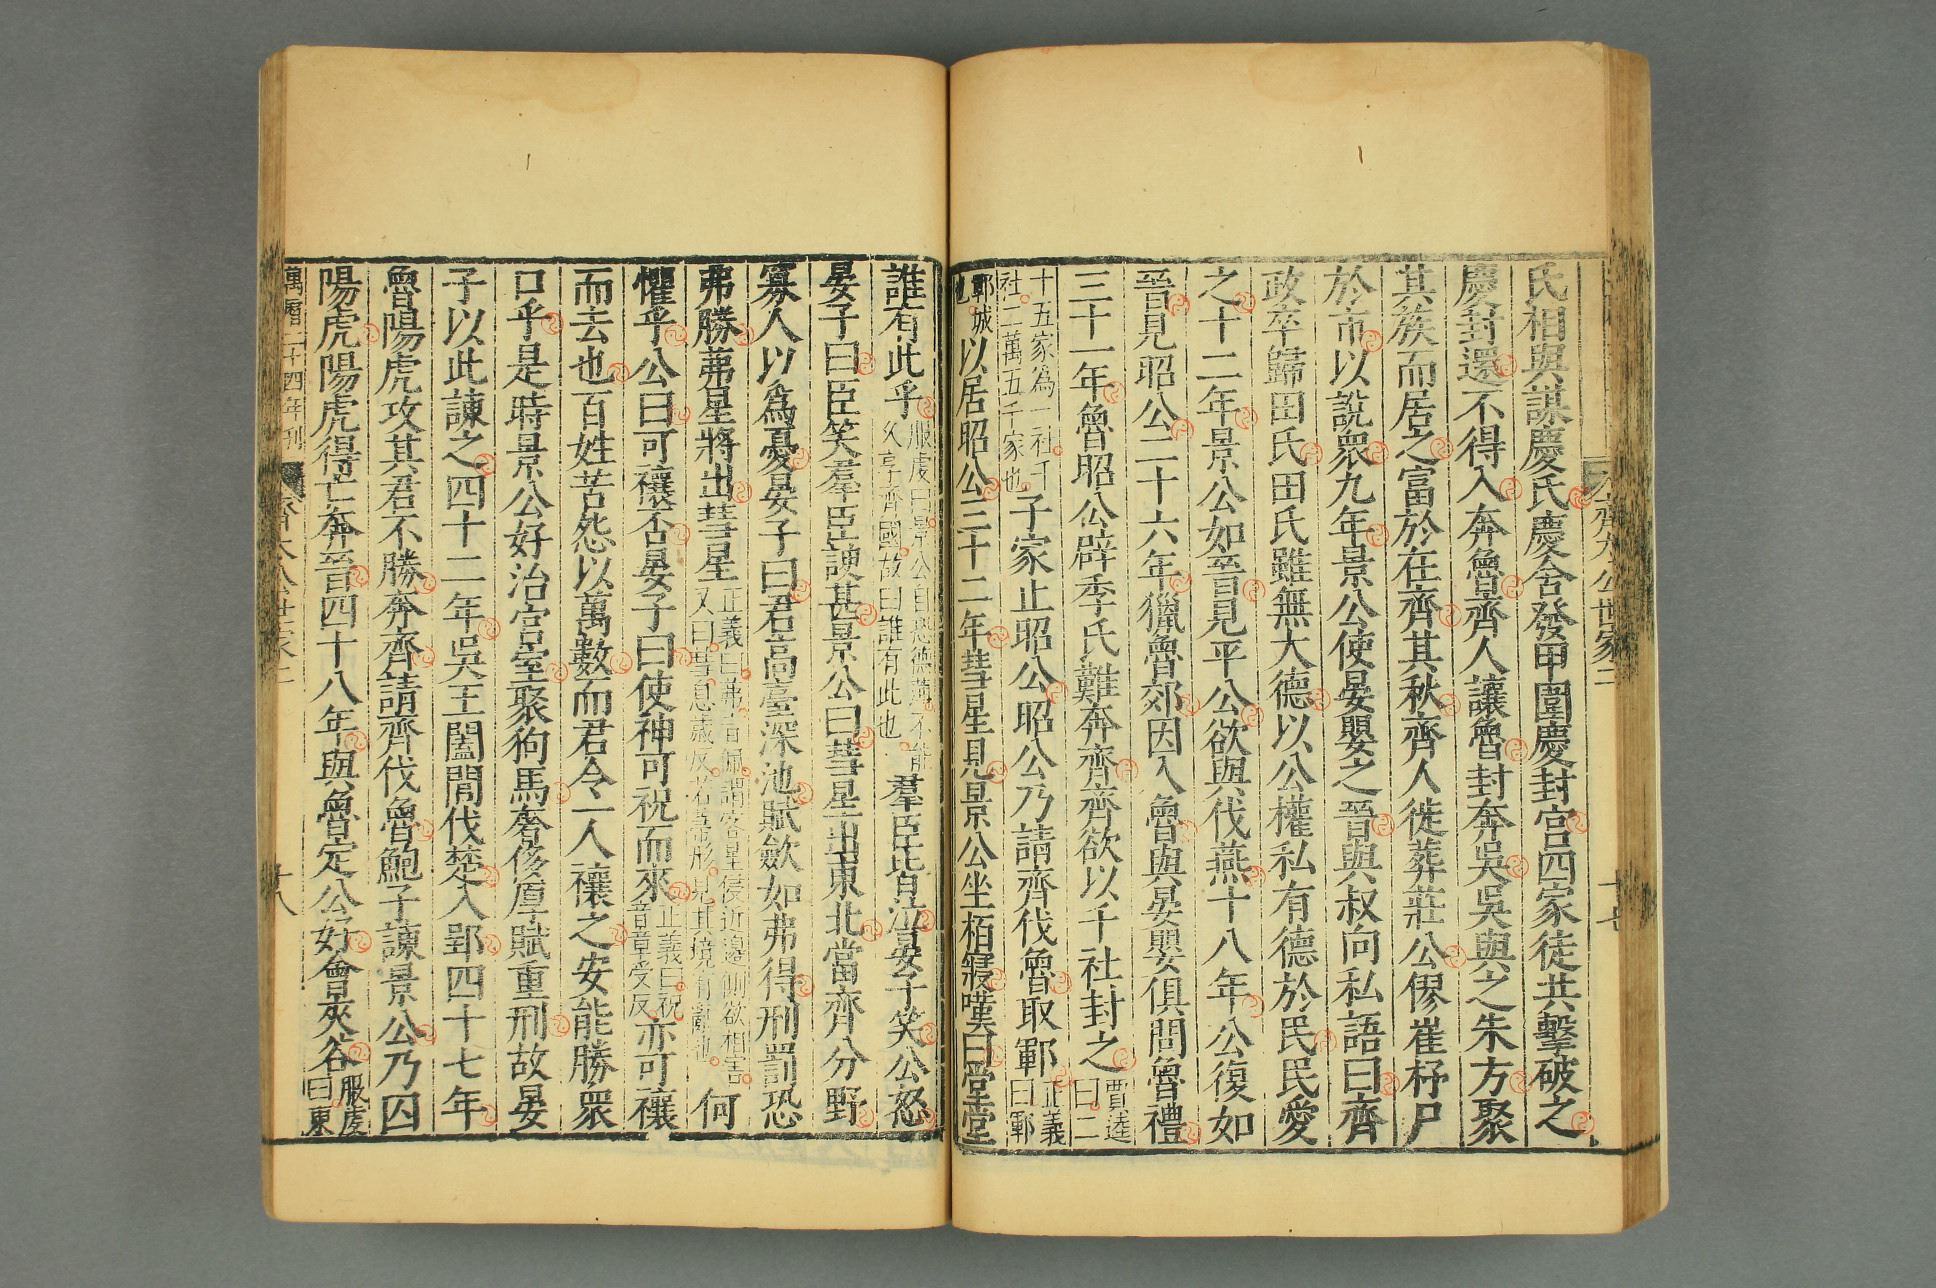 氏相與謀慶氏慶舍發甲圍慶封宮四家徒共擊破之
慶封還不得入奔魯齊人讓魯封奔吳吳與之朱方聚
其族而居之富於在齊其秋齊人徙葬莊公僇崔杼尸
於市以說衆九年景公使晏嬰之晉與叔向私語曰齊
政卒歸田氏田氏雖無大德以公權私有德於民民愛
之十二年景公如晉見平公欲與伐燕十八年公復如
晉見昭公二十六年獵魯郊因入魯與晏嬰俱問魯禮
三十一年魯昭公辟季氏難奔齊齊欲以千社封之賈逵曰二
十五家爲一社千社二萬五千家也子家止昭公昭公乃請齊伐魯取鄆正義曰鄆
鄆城也以居昭公三十二年彗星見景公坐栢寢嘆曰堂堂
誰有此乎服虔曰景公自恐德薄不能久享齊國故曰誰有此也羣臣皆泣晏子笑公怒
晏子曰臣笑羣臣諛甚景公曰彗星出東北當齊分野
寡人以爲憂晏子曰君高臺深池賦斂如弗得刑罰恐
弗勝茀星將出彗星正義曰茀音佩謂客星侵近邊側欲相害又曰彗息歲反若帚形見其境有亂也何
懼乎公曰可禳否晏子曰使神可祝而來正義曰祝音章受反亦可禳
而去也百姓苦怨以萬數而君令一人禳之安能勝衆
口乎是時景公好治宮室聚狗馬奢侈厚賦重刑故晏
子以此諫之四十二年吳王闔閭伐楚入郢四十七年
魯陽虎攻其君不勝奔齊請齊伐魯鮑子諫景公乃囚
陽虎陽虎得亡奔晉四十八年與魯定公好會夾谷服虔曰東
萬曆二十四年刊 齊太公世家二 十八